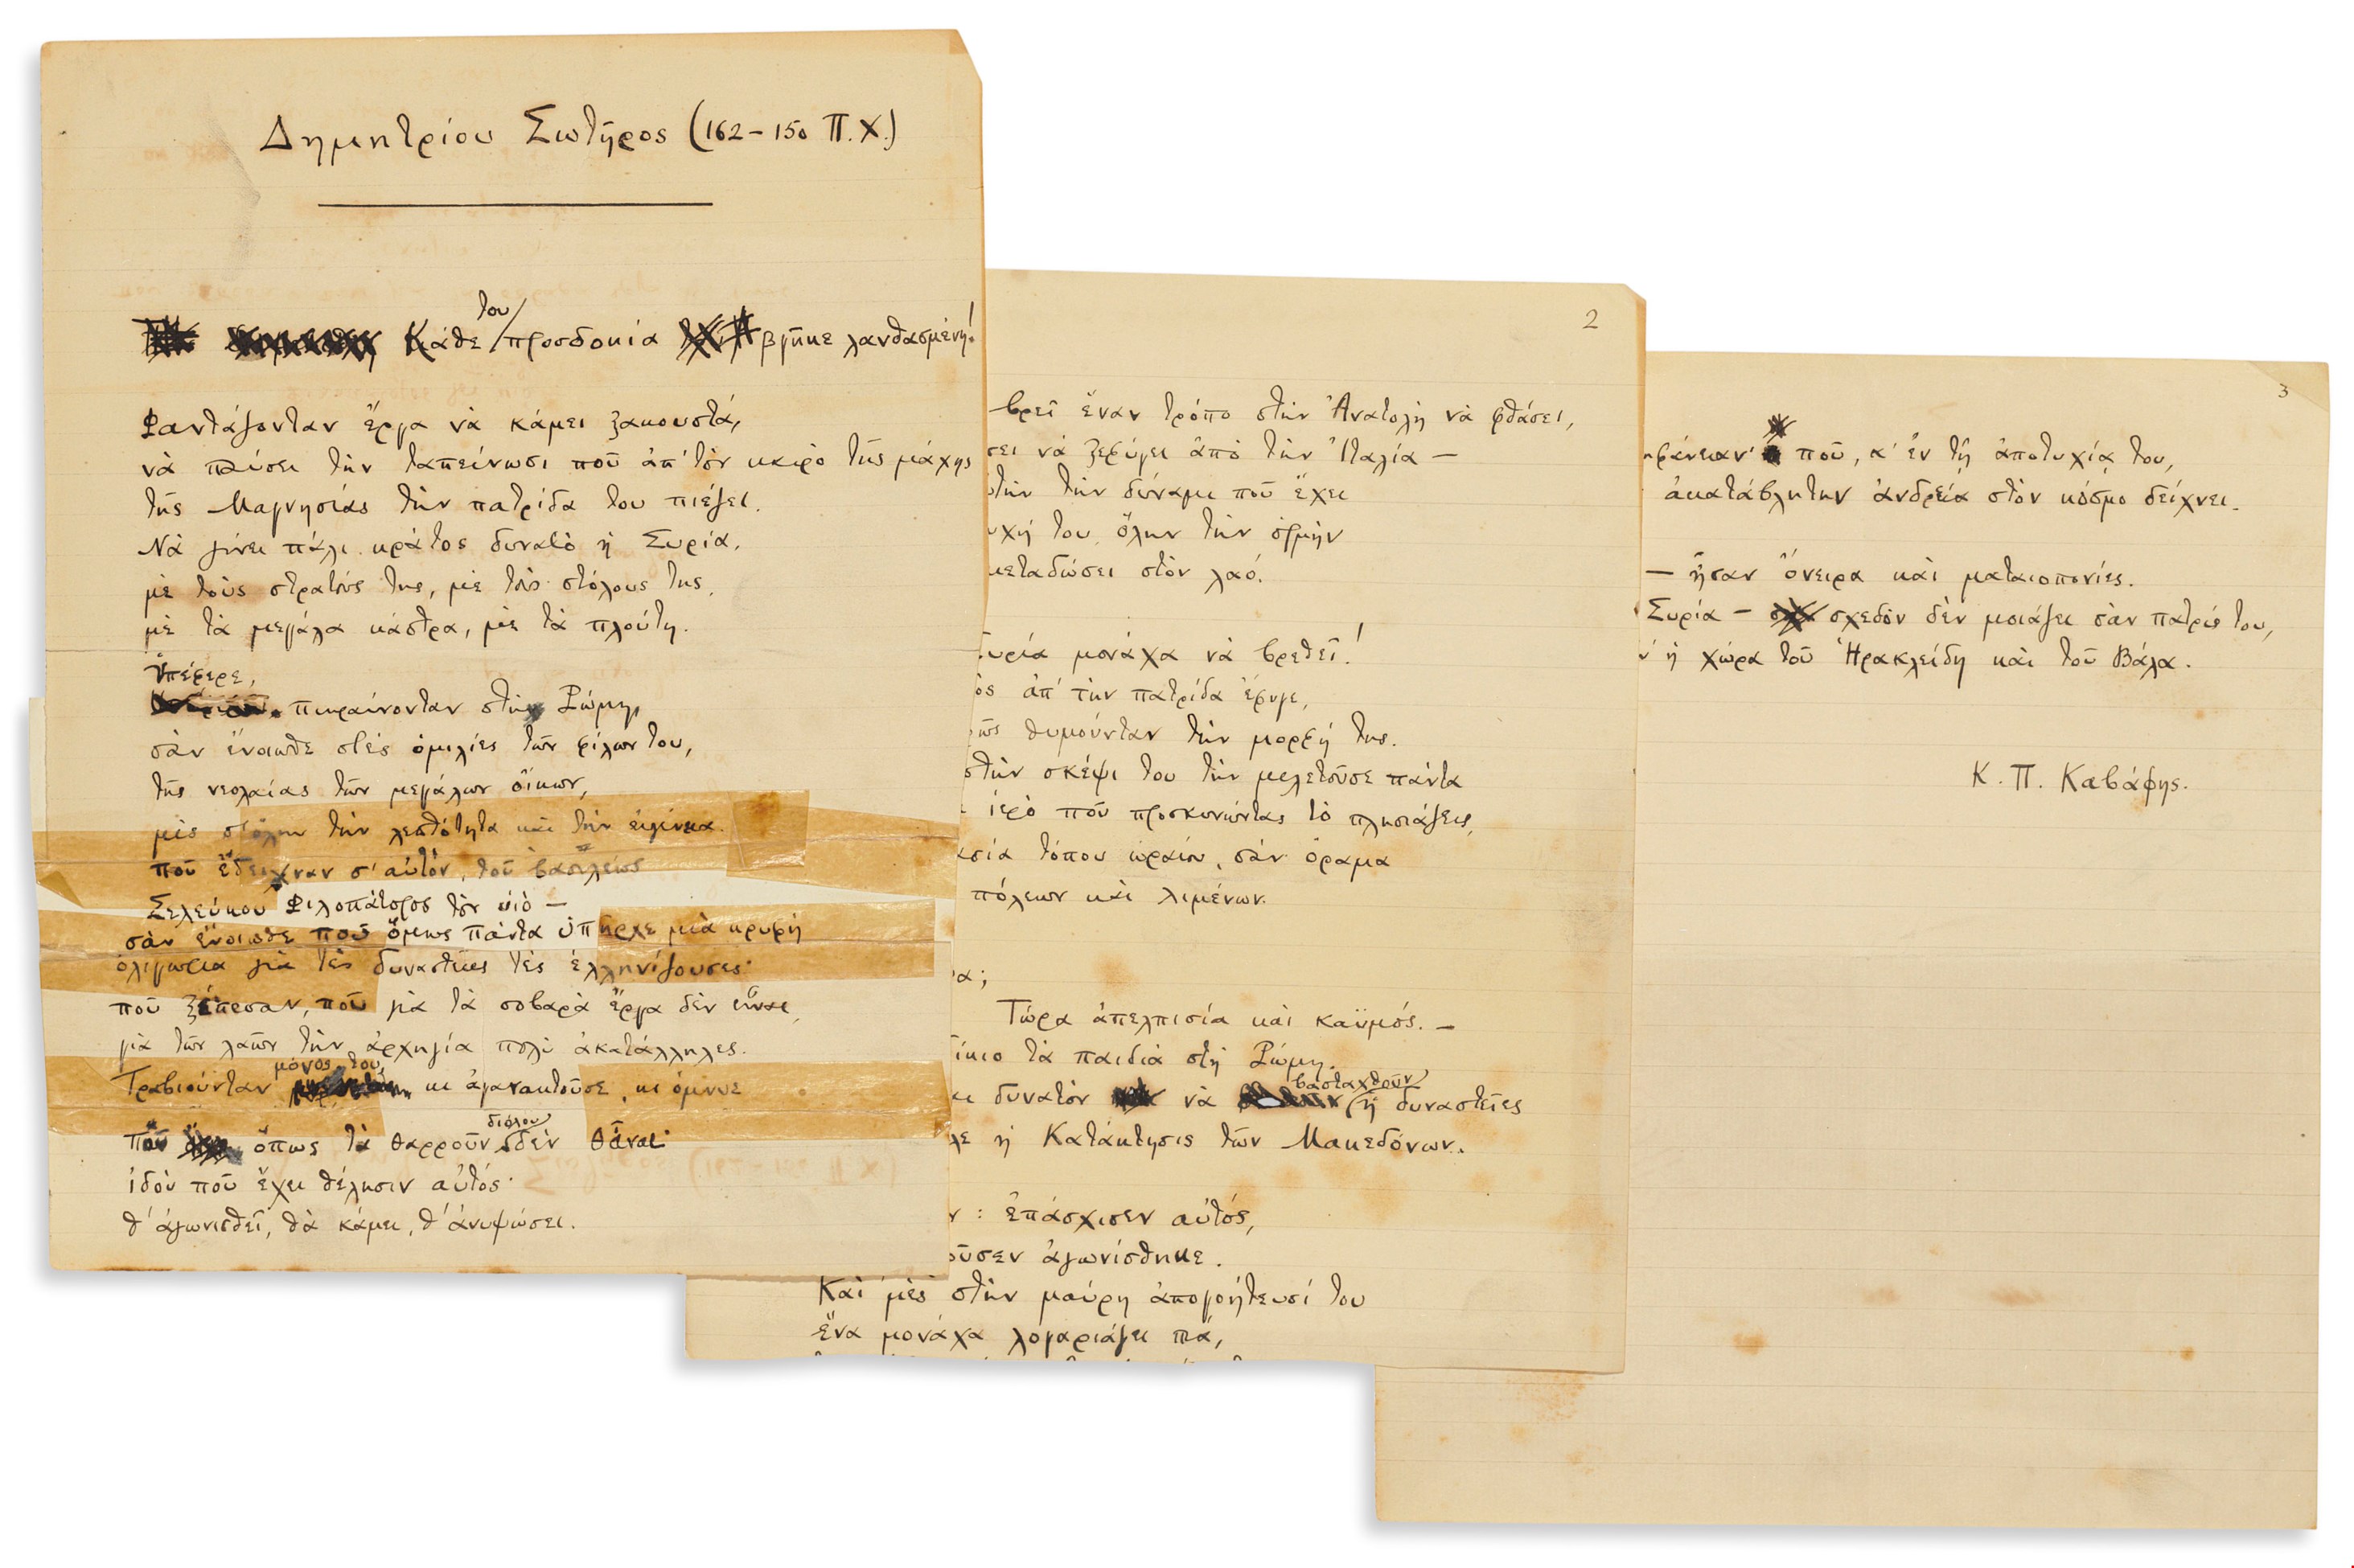 Δημητρίου Σωτῆρος (162-150 Π.Χ.)
Κάθε του προσδοκία βγῆκε λανθασμένη!
Φαντάζονταν ἔργα νὰ κάμει ξακουστά,
νὰ παύσει τὴν ταπείνωσι ποῦ ἀπ' τὸν καιρὸ τῆς μάχης
τῆς Μαγνησίας τὴν πατρίδα του πιέζει.
Νὰ γίνει πάλι κράτος δυνατὸ ἡ Συρία,
μὲ τοὺς στρατούς της, μὲ τοὺς στόλους της,
μὲ τὰ μεγάλα κάστρα, μὲ τὰ πλούτη.
Ὑπέφερε,
πικραίνονταν στὴν Ρώμη
σὰν ἔνοιωθε στὲς ὁμιλίες τῶν φίλων του,
τῆς νεολαίας τῶν μεγάλων οἴκων,
μὲς σ' ὅλην τὴν λεπτότητα καὶ τὴν εὐγένεια
ποῦ ἔδειχναν σ' αὐτόν, τοῦ βασιλέως
Σελεύκου Φιλοπάτορος τὸν υἱὸ —
σὰν ἔνοιωθε ποῦ ὅμως πάντα ὑπῆρχε μιὰ κρυφὴ
ὀλιγωρία γιὰ τὲς δυναστεῖες τὲς ἑλληνίζουσες·
ποῦ ξέπεσαν, ποῦ γιὰ τὰ σοβαρὰ ἔργα δὲν εἶναι,
γιὰ τῶν λαῶν τὴν ἀρχηγία πολὺ ἀκατάλληλες.
Τραβιούνταν μόνος του, κι ἀγανακτοῦσε, κι ὄμνυε
ποῦ ὅπως τὰ θαρροῦν διόλου δὲν θἆναι·
ἰδοὺ ποῦ ἔχει θέλησιν αὐτός·
θ' ἀγωνισθεῖ, θὰ κάμει, θ' ἀνυψώσει.
2
βρεῖ ἕναν τρόπο στὴν Ἀνατολὴ νὰ φθάσει,
σει νὰ ξεφύγει ἀπὸ τὴν Ἰταλία —
τὴν τὴν δύναμι ποῦ ἔχει
υχή του, ὅλην τὴν ὁρμὴν
μεταδώσει στὸν λαό.
υρία μονάχα νὰ βρεθεῖ!
ὸς ἀπ' τὴν πατρίδα ἔφυγε,
ῶς θυμούνταν τὴν μορφή της.
στὴν σκέψι του τὴν μελετοῦσε πάντα
ἱερὸ ποῦ προσκυνώντας τὸ πλησιάζεις,
ασία τόπου ὡραίου, σὰν ὅραμα
πόλεων καὶ λιμένων.
α;
Τώρα ἀπελπισία καὶ καϋμός. —
ίκιο τὰ παιδιὰ στὴ Ρώμη.
δυνατὸν νὰ βασταχθοῦν ἡ δυναστεῖες
λε ἡ Κατάκτησις τῶν Μακεδόνων.
ν: ἐπάσχισεν αὐτός,
οῦσεν ἀγωνίσθηκε.
Καὶ μὲς στὴν μαύρη ἀπογοήτευσί του
ἕνα μονάχα λογαριάζει πιά,
3
φάνειαν· ποῦ, κ' ἐν τῇ ἀποτυχίᾳ του,
ἀκατάβλητην ἀνδρεία στὸν κόσμο δείχνει.
— ἦσαν ὄνειρα καὶ ματαιοπονίες.
Συρία — σχεδὸν δὲν μοιάζει σὰν πατρίς του,
ν' ἡ χώρα τοῦ Ἡρακλείδη καὶ τοῦ Βάλα.
Κ. Π. Καβάφης.